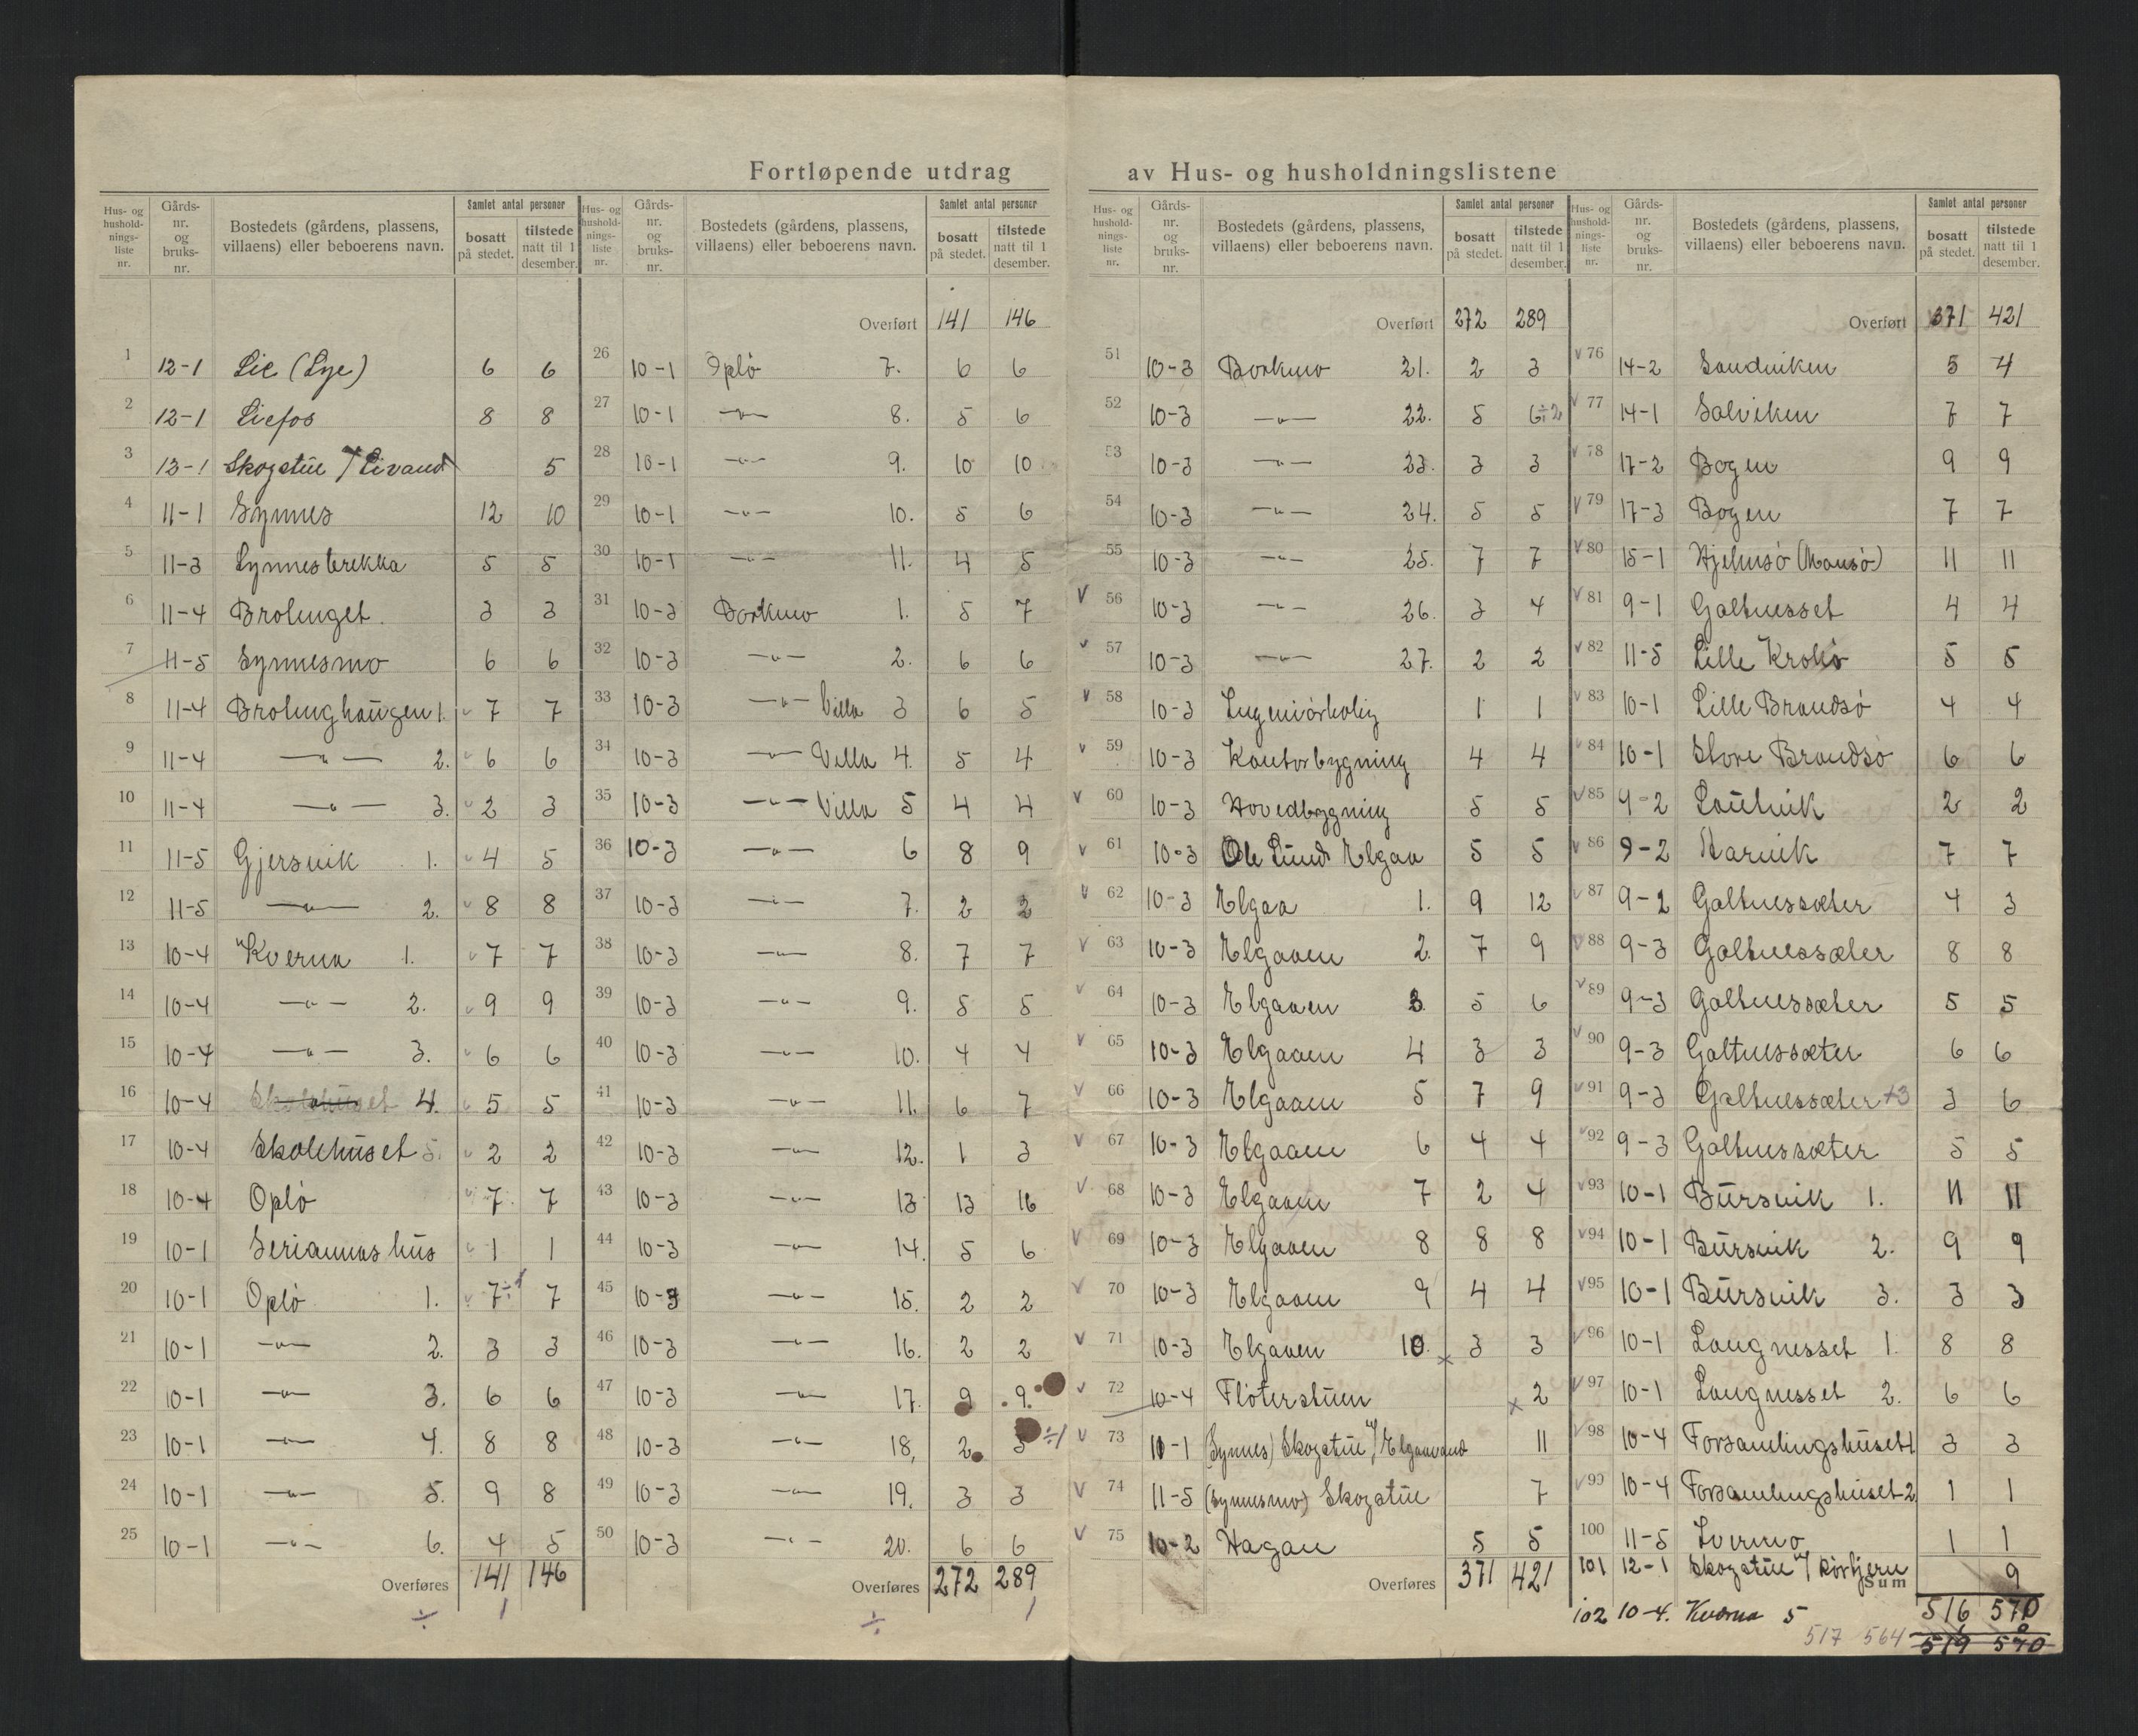 Fortløpende utdrag av Hus- og husholdningslistene
Hus- og hushold-nings-liste nr. Gårds-nr. og bruks-nr. Bostedets (gårdens, plassens, villaens) eller beboerens navn. Samlet antal personer bosatt på stedet. tilstede natt til 1 desember.
1 12-1 Lie (Lye) 6 6
2 12-1 Liefos 8 8
3 13-1 Skogstue v/ Livand 5
4 11-1 Synnes 12 10
5 11-3 Synnesbrekka 5 5
6 11-4 Brolinget. 3 3
7 11-5 Synnesmo 6 6
8 11-4 Brolinghaugen 1. 7 7
9 11-4 —"— 2. 6 6
10 11-4 —"— 3. 2 3
11 11-5 Gjersvik 1. 4 5
12 11-5 —"— 2. 8 8
13 10-4 Kverna 1. 7 7
14 10-4 —"— 2. 9 9
15 10-4 —"— 3. 6 6
16 10-4 Skolehuset 4. 5 5
17 10-4 Skolehuset 5. 2 2
18 10-4 Oplø 7 7
19 10-1 Seriannas hus 1 1
20 10-1 Oplø 1. 7÷1 7
21 10-1 —"— 2. 3 3
22 10-1 —"— 3. 6 6
23 10-1 —"— 4. 8 8
24 10-1 —"— 5. 9 8
25 10-1 —"— 6. 4 5
Overføres 141 146
÷ 1
Hus- og hushold-nings-liste nr. Gårds-nr. og bruks-nr. Bostedets (gårdens, plassens, villaens) eller beboerens navn. Samlet antal personer bosatt på stedet. tilstede natt til 1 desember.
Overført 141 146
26 10-1 Oplø 7. 6 6
27 10-1 —"— 8. 5 6
28 10-1 —"— 9. 10 10
29 10-1 —"— 10. 5 6
30 10-1 —"— 11. 4 5
31 10-3 Borkmo 1. 5 7
32 10-3 —"— 2. 6 6
33 10-3 —"— Villa 3 6 5
34 10-3 —"— Villa 4. 5 4
35 10-3 —"— Villa 5 4 4
36 10-3 —"— 6 8 9
37 10-3 —"— 7. 2 2
38 10-3 —"— 8. 7 7
39 10-3 —"— 9. 5 5
40 10-3 —"— 10. 4 4
41 10-3 —"— 11. 6 7
42 10-3 —"— 12. 1 3
43 10-3 —"— 13 13 16
44 10-3 —"— 14. 5 6
45 10-3 —"— 15. 2 2
46 10-3 —"— 16. 2 2
47 10-3 —"— 17. 9 9.
48 10-3 —"— 18, 2 3 ÷1
49 10-3 —"— 19. 3 3
50 10-3 —"— 20. 6 6
Overføres 272 289
÷ 1
Hus- og hushold-nings-liste nr. Gårds-nr. og bruks-nr. Bostedets (gårdens, plassens, villaens) eller beboerens navn. Samlet antal personer bosatt på stedet. tilstede natt til 1 desember.
Overført 272 289
51 10-3 Borkmo 21. 2 3
52 10-3 —"— 22. 5 6÷2
53 10-3 —"— 23. 3 3
54 10-3 —"— 24. 5 5
55 10-3 —"— 25. 7 7
v 56 10-3 —"— 26. 3 4
v 57 10-3 —"— 27. 2 2
v 58 10-3 Ingeniørbolig 1 1
v 59 10-3 Kontorbygning 4 4
v 60 10-3 Hovedbygning 5 5
v 61 10-3 Ole Lund Elgaa 5 5
v 62 10-3 Elgaa 1. 9 12
v 63 10-3 Elgaaen 2. 7 9
v 64 10-3 Elgaaen 3. 5 6
v 65 10-3 Elgaaen 4 3 3
v 66 10-3 Elgaaen 5 7 9
v 67 10-3 Elgaaen 6 4 4
v 68 10-3 Elgaaen 7 2 4
v 69 10-3 Elgaaen 8 8 8
v 70 10-3 Elgaaen 9 4 4
v 71 10-3 Elgaaen 10. x 3 3
v 72 10-4 Fløterstuen x 2
v 73 10-1 (Synnes) Skogstue v/ Elgaavand 11
v 74 11-5 (Synnesmo) Skogstue 7
v 75 10-2 Hagan 5 5
Overføres 371 421
Hus- og hushold-nings-liste nr. Gårds-nr. og bruks-nr. Bostedets (gårdens, plassens, villaens) eller beboerens navn. Samlet antal personer bosatt på stedet. tilstede natt til 1 desember.
Overført 371 421
v 76 14-2 Sandviken 5 4
v 77 14-1 Salviken 7 7
v 78 17-2 Bogen 9 9
v 79 17-3 Bogen 7 7
v 80 15-1 Hjelmsø (Kausø) 11 11
v 81 9-1 Galtnesset 4 4
v 82 11-5 Lille Krokø 5 5
v 83 10-1 Lille Brandsø 4 4
v 84 10-1 Store Brandsø 6 6
v 85 9-2 Lauvik 2 2
v 86 9-2 Harvik 7 7
v 87 9-2 Galtnessæter 4 3
v 88 9-3 Galtnessæter 8 8
v 89 9-3 Galtnessæter 5 5
v 90 9-3 Galtnessæter 6 6
v 91 9-3 Galtnessæter +3 3 6
v 92 9-3 Galtnessæter 5 5
v 93 10-1 Bursvik 1. 11 11
v 94 10-1 Bursvik 2. 9 9
v 95 10-1 Bursvik 3. 3 3
v 96 10-1 Langnesset 1. 8 8
v 97 10-1 Langnesset 2. 6 6
v 98 10-4 Forsamlingshuset 1 3 3
v 99 10-4 Forsamlingshuset 2 1 1
100 11-5 Ivermo 1 1
101 12-1 Skogstue v/ Rørtjern 9
Sum
102 10-4. Kverna 5 516 570
517 564 519 570